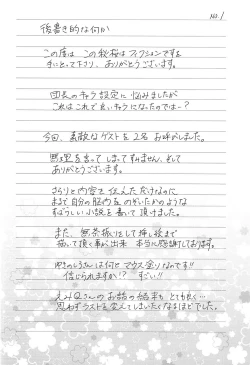 No. 1
後書き的な何か
この度は この秋桜はフィクションですを
手にとって下さり、ありがとうございます。
団長のキャラ設定に悩みましたが
これはこれで良いキャラになったのでは…?
今回、素敵なゲストを2名お呼びしました。
無理を言ってしまってすみません、そして
ありがとうございます。
さらりと内容を伝えただけなのに
まるで自分の脳内をのぞいたかのような
すばらしい小説を書いて頂けました。
また、無茶振りとして挿し絵まで
描いて頂く事が出来 本当に感謝しております。
ゆきのしろさんは何とマウス塗りなのです!!
信じられますか!? すごい!!
えみQさんのお話の結末もとても良く…
思わずラストを変えてしまいたくなるほどでした。